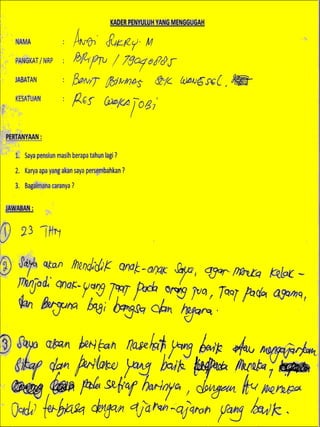 KADER PENYULUH YANG MENGGUGAH
NAMA : ANDI SUKRY. M
PANGKAT / NRP : BRIPTU / 79040885
JABATAN : BANIT BINMAS SEK WANGSEL.
KESATUAN : RES WAKATOBI
PERTANYAAN :
1. Saya pensiun masih berapa tahun lagi ?
2. Karya apa yang akan saya persembahkan ?
3. Bagaimana caranya ?
JAWABAN :
1 23 THN
2 Saya akan mendidik anak-anak saya, agar mereka kelak
menjadi anak-yang taat pada orang tua, taat pada agama,
dan berguna bagi bangsa dan negara.
3 Saya akan berikan nasehat yang baik atau mengajarkan
sikap dan perilaku yang baik kepada mereka,
pada setiap harinya, dengan itu mereka
jadi terbiasa dengan ajaran-ajaran yang baik.